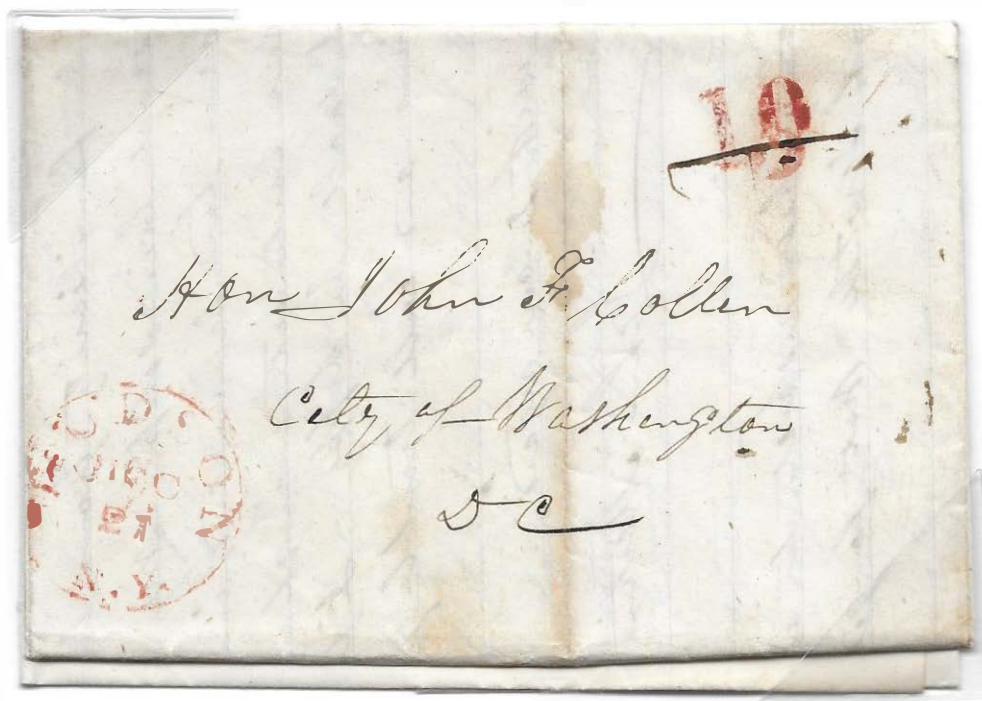 10
Hon John F. Collin
City of Washington
D C
HUDSON
21
N.Y.